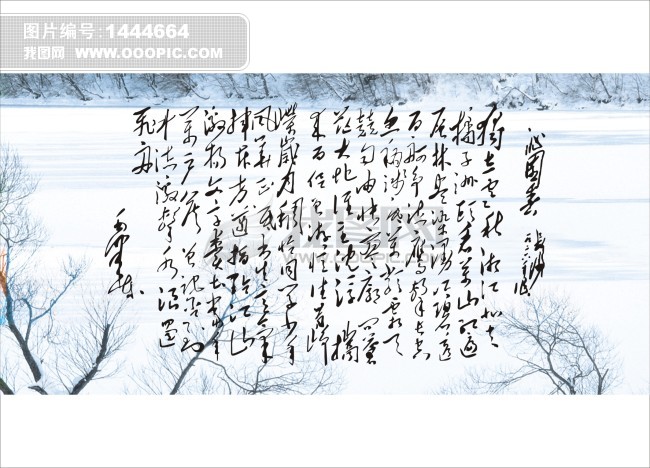 图片编号: 1444664
我图网 www.OOOPIC.com
沁园春 长沙
独立寒秋湘江北去
橘子洲头看万山红遍
层林尽染漫江碧透
百舸争流鹰击长空
鱼翔浅底万类霜天
竞自由怅寥廓问苍
茫大地谁主沉浮携
来百侣曾游忆往昔峥
嵘岁月稠恰同学少年
风华正茂书生意气
挥斥方遒指点江山
激扬文字粪土当年
万户侯曾记否到
中流击水浪遏
飞舟
毛泽东